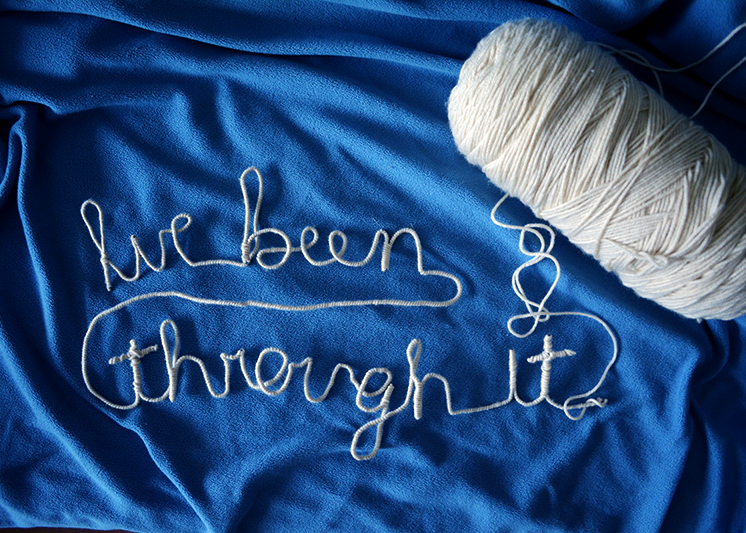 I've been
through it